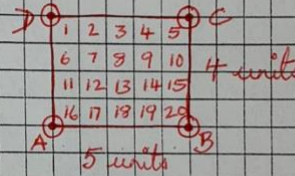 D C
1 2 3 4 5
6 7 8 9 10
11 12 13 14 15
16 17 18 19 20
4 units
A B
5 units